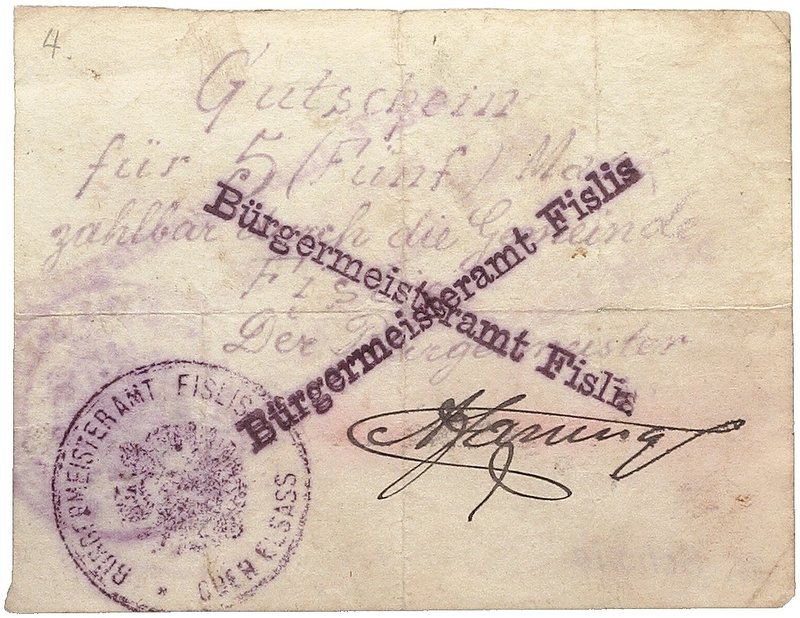 4.
Gutschein
für 5 (Fünf) Mark
zahlbar durch die Gemeinde
Fislis
Der Bürgermeister
Bürgermeisteramt Fislis
Bürgermeisteramt Fislis
BÜRGERMEISTERAMT FISLIS
* OBER ELSASS